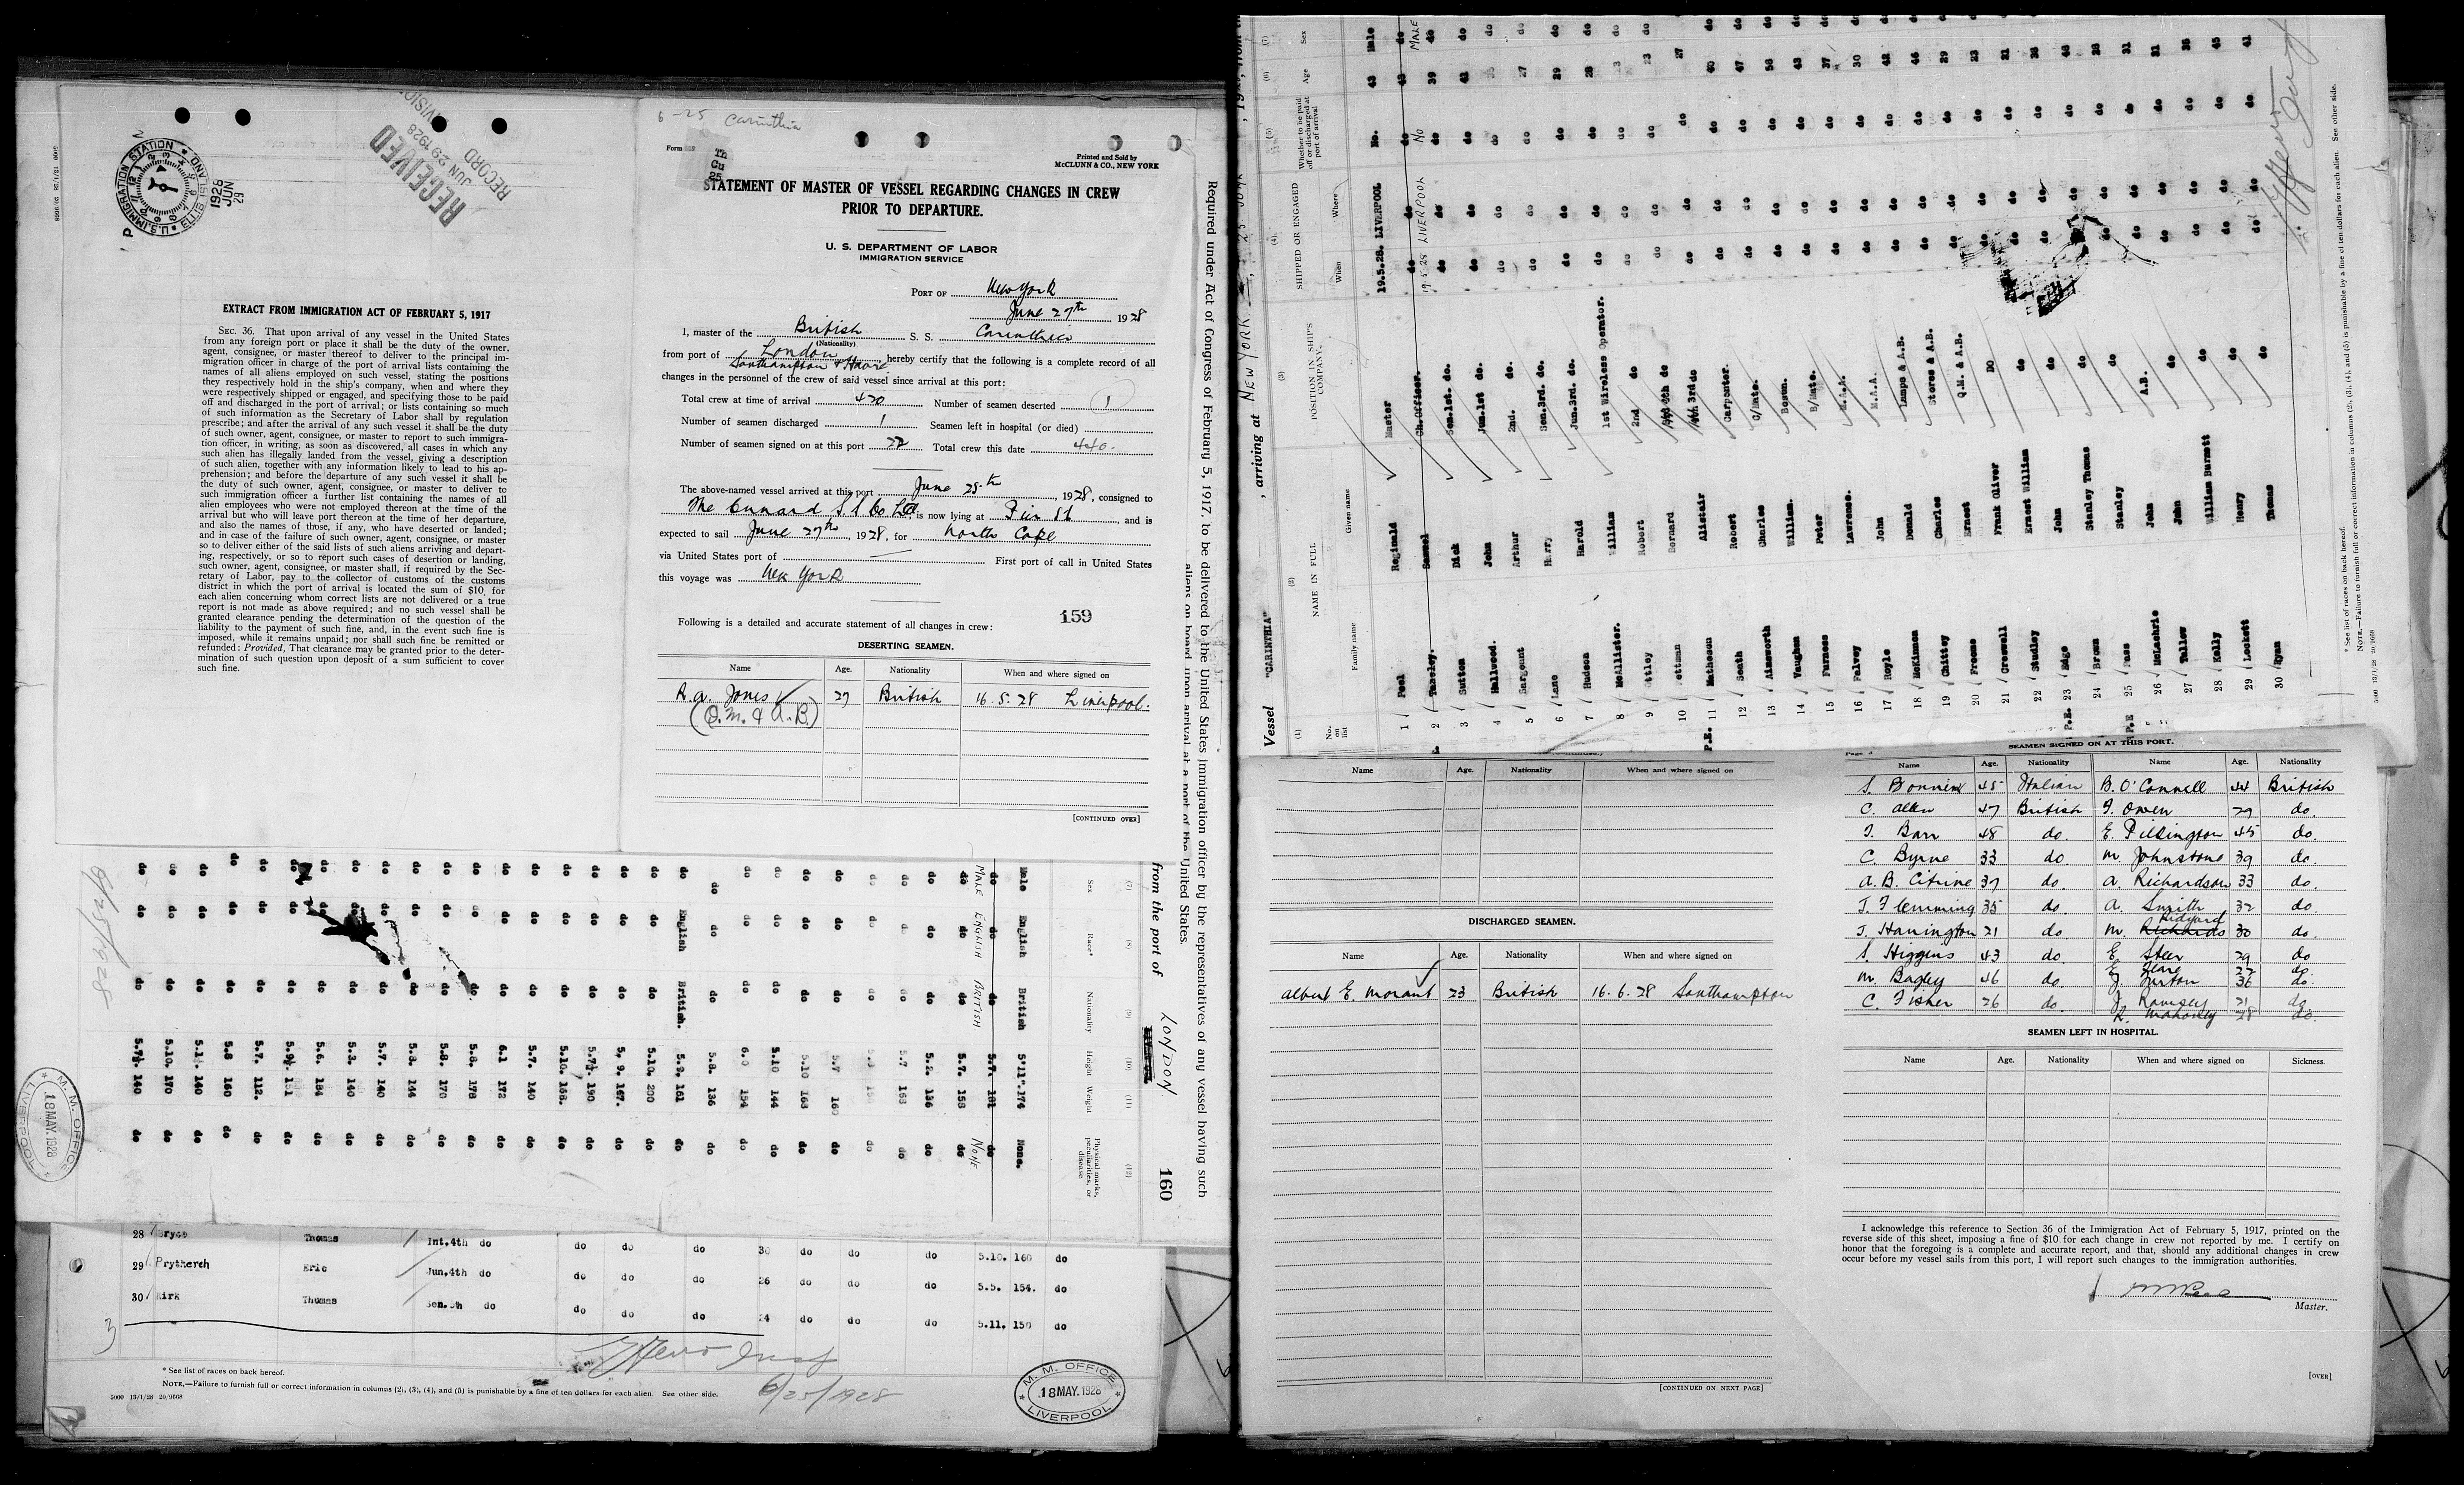 U.S. IMMIGRATION STATION
ELLIS ISLAND
1928
JUN
29
P
RECEIVED
JUN 29 1928
RECORD DIVISION
5000 13/1/28 20/9668
EXTRACT FROM IMMIGRATION ACT OF FEBRUARY 5, 1917
SEC. 36. That upon arrival of any vessel in the United States
from any foreign port or place it shall be the duty of the owner,
agent, consignee, or master thereof to deliver to the principal im-
migration officer in charge of the port of arrival lists containing the
names of all aliens employed on such vessel, stating the positions
they respectively hold in the ship's company, when and where they
were respectively shipped or engaged, and specifying those to be paid
off and discharged in the port of arrival; or lists containing so much
of such information as the Secretary of Labor shall by regulation
prescribe; and after the arrival of any such vessel it shall be the duty
of such owner, agent, consignee, or master to report to such immigra-
tion officer, in writing, as soon as discovered, all cases in which any
such alien has illegally landed from the vessel, giving a description
of such alien, together with any information likely to lead to his ap-
prehension; and before the departure of any such vessel it shall be
the duty of such owner, agent, consignee, or master to deliver to
such immigration officer a further list containing the names of all
alien employees who were not employed thereon at the time of the
arrival but who will leave port thereon at the time of her departure,
and also the names of those, if any, who have deserted or landed;
and in case of the failure of such owner, agent, consignee, or master
so to deliver either of the said lists of such aliens arriving and depart-
ing, respectively, or so to report such cases of desertion or landing,
such owner, agent, consignee, or master shall, if required by the Sec-
retary of Labor, pay to the collector of customs of the customs
district in which the port of arrival is located the sum of $10 for
each alien concerning whom correct lists are not delivered or a true
report is not made as above required; and no such vessel shall be
granted clearance pending the determination of the question of the
liability to the payment of such fine, and, in the event such fine is
imposed, while it remains unpaid; nor shall such fine be remitted or
refunded: Provided, That clearance may be granted prior to the deter-
mination of such question upon deposit of a sum sufficient to cover
such fine.
6-25 Carinthia
Form
Th
Cu
25
Printed and Sold by
McCLUNN & CO., NEW YORK
STATEMENT OF MASTER OF VESSEL REGARDING CHANGES IN CREW
PRIOR TO DEPARTURE.
U. S. DEPARTMENT OF LABOR
IMMIGRATION SERVICE
PORT OF New York
June 27th 1928
I, master of the British S. S. Carinthia
(Nationality)
from port of London Southampton & Havre, hereby certify that the following is a complete record of all
changes in the personnel of the crew of said vessel since arrival at this port:
Total crew at time of arrival 420 Number of seamen deserted 1
Number of seamen discharged 1 Seamen left in hospital (or died)
Number of seamen signed on at this port 22 Total crew this date 440.
The above-named vessel arrived at this port June 25th, 1928, consigned to
The Cunard S S Co Ltd, is now lying at Pier 56, and is
expected to sail June 27th, 1928, for North Cape
via United States port of First port of call in United States
this voyage was New York
159
Following is a detailed and accurate statement of all changes in crew:
DESERTING SEAMEN.
Name Age. Nationality When and where signed on
R. A. Jones 27 British 16. 5. 28 Liverpool.
(Q.M. & A.B.)
[CONTINUED OVER]
Required under Act of Congress of February 5, 1917, to be delivered to the United States immigration officer by the representatives of any vessel having such
aliens on board upon arrival at a port of the United States.
from the port of LONDON
160
(7) (8) (9) (10) (11) (12)
Sex Race* Nationality Height Weight Physical marks, peculiarities, or disease
Male English British 5'11". 174 None.
do do do 5.7. 181 do
MALE ENGLISH BRITISH NONE
do do do 5.7. 158 do
do do do 5.2. 136 do
do do do 5.7 168 do
do do do do
do do do 5.7 160 do
do do do 5.10 168 do
do do do 5.10 144 do
do do do 6.0 154 do
do do do 5.8. 136 do
do English British. 5.9. 161 do
do do do 5.10. 200 do
do do do 5. 9. 167. do
do do do 5.7½. 190 do
do do do 5.10. 168. do
do do do 5.7. 140 do
do do do 6.1 172 do
do do do 5.8. 178 do
do do do 5.8. 170 do
do do do 5.8. 144 do
do do do 5.7. 140 do
do do do 5.3. 140 do
do do do 5.6. 184 do
do do do 5.9½. 151 do
do do do 5.7. 112. do
do do do 5.8 160 do
do do do 140 do
do do do 5.10. 170 do
do do do 5.7½. 140 do
6/25/1928
M. M. OFFICE
18 MAY. 1928
LIVERPOOL
28 Bryce Thomas Int.4th do do do do 30 do do do 5.10. 160 do
29 Prythereh Eric Jun.4th do do do do 26 do do do 5.5. 154. do
30 Kirk Thomas Sen.5h do do do do 24 do do do 5.11. 150 do
3
* See list of races on back hereof.
NOTE.—Failure to furnish full or correct information in columns (2), (3), (4), and (5) is punishable by a fine of ten dollars for each alien. See other side.
5000 13/1/28 20/9668
6/25/1928
M. M. OFFICE
18 MAY. 1928
LIVERPOOL
Vessel "CARINTHIA", arriving at NEW YORK, 25 JUNE, 19
(1) (2) (3) (4) (5) (6) (7)
No. on list
NAME IN FULL
Family name Given name
POSITION IN SHIP'S COMPANY.
SHIPPED OR ENGAGED
When Where
Whether to be paid off or discharged at port of arrival
Age Sex
1 Peel Reginald Master 19.5.28. LIVERPOOL No. 43 Male
2 Tansley. Samuel Ch.Officer. do do do 43 do
19.5.28 LIVERPOOL No MALE
3 Sutton Dick Sen.1st. do. do do do 39 do
4 Hallwood. John Jun.1st do. do do do 41 do
5 Sargeant Arthur 2nd. do. do do do do
6 Lane Harry Sen.3rd. do. do do do 27 do
7 Hudson Harold Jun.3rd. do. do do do 29 do
8 McAllister. William 1st Wireless Operator. do do do 28 do
9 Robert 2nd do do do do do
10 Bernard do do do do 23 do
P.E. 11 Matheson Alistair 3rd do do do do 27
12 Seath Robert Carpenter. do do do 40 do
13 Ainsworth Charles C/Mate. do do do 47 do
14 Vaughan William. Bosun. do do do 56 do
15 Furness Peter B/Mate. do do do 43 do
16 Falvey Lawrence. M.A.A. do do do 37 do
17 Hoyle John M.A.A. do do do 30 do
18 McKinnon Donald Lamps & A.B. do do do 42 do
19 Chitty Charles Stores & A.B. do do do 46 do
20 Freeme Ernest Q.M. & A.B. do do do 29 do
21 Creswell Frank Oliver DO do do do 23 do
22 Studley Ernest William do do do do 21 do
P.E. 23 Edge John do do do do do
24 Brown Stanley Thomas do do do do do
P.E 25 Stanley do do do do 28 do
26 McLachrie John A.B. do do do 21 do
27 Tallow John do do do do 21 do
28 Kelly William Burnett do do do do do
29 Lockett Henry do do do do 45 do
30 Ryan Thomas do do do do 41 do
* See list of races on back hereof.
NOTE.—Failure to furnish full or correct information in columns (2), (3), (4), and (5) is punishable by a fine of ten dollars for each alien. See other side.
5000 13/1/28 20/9668
Name Age. Nationality When and where signed on
DISCHARGED SEAMEN.
Name Age. Nationality When and where signed on
Albert E. Morant 23 British 16. 6. 28 Southampton
[CONTINUED ON NEXT PAGE]
SEAMEN SIGNED ON AT THIS PORT.
Name Age. Nationality Name Age. Nationality
S. Bonnini 45 Italian B. O'Connell 44 British
C. Allen 47 British F. Owen 29 do.
J. Barr 48 do. E. Pilkington 45 do.
C. Byrne 33 do M. Johnstone 39 do.
A. B. Citrine 37 do. A. Richardson 33 do.
J. Flemming 35 do. A. Smith 32 do.
J. Hanington 21 do. M. Richards Ridyard 30 do.
S. Higgins 43 do E. Steer 29 do
M. Bagley 46 do. 36 do.
C. Fisher 26 do. J. Ramsey 21 do
R. Mahoney 28 do.
SEAMEN LEFT IN HOSPITAL
Name Age. Nationality When and where signed on Sickness.
I acknowledge this reference to Section 36 of the Immigration Act of February 5, 1917, printed on the
reverse side of this sheet, imposing a fine of $10 for each change in crew not reported by me. I certify on
honor that the foregoing is a complete and accurate report, and that, should any additional changes in crew
occur before my vessel sails from this port, I will report such changes to the immigration authorities.
Master.
[OVER]